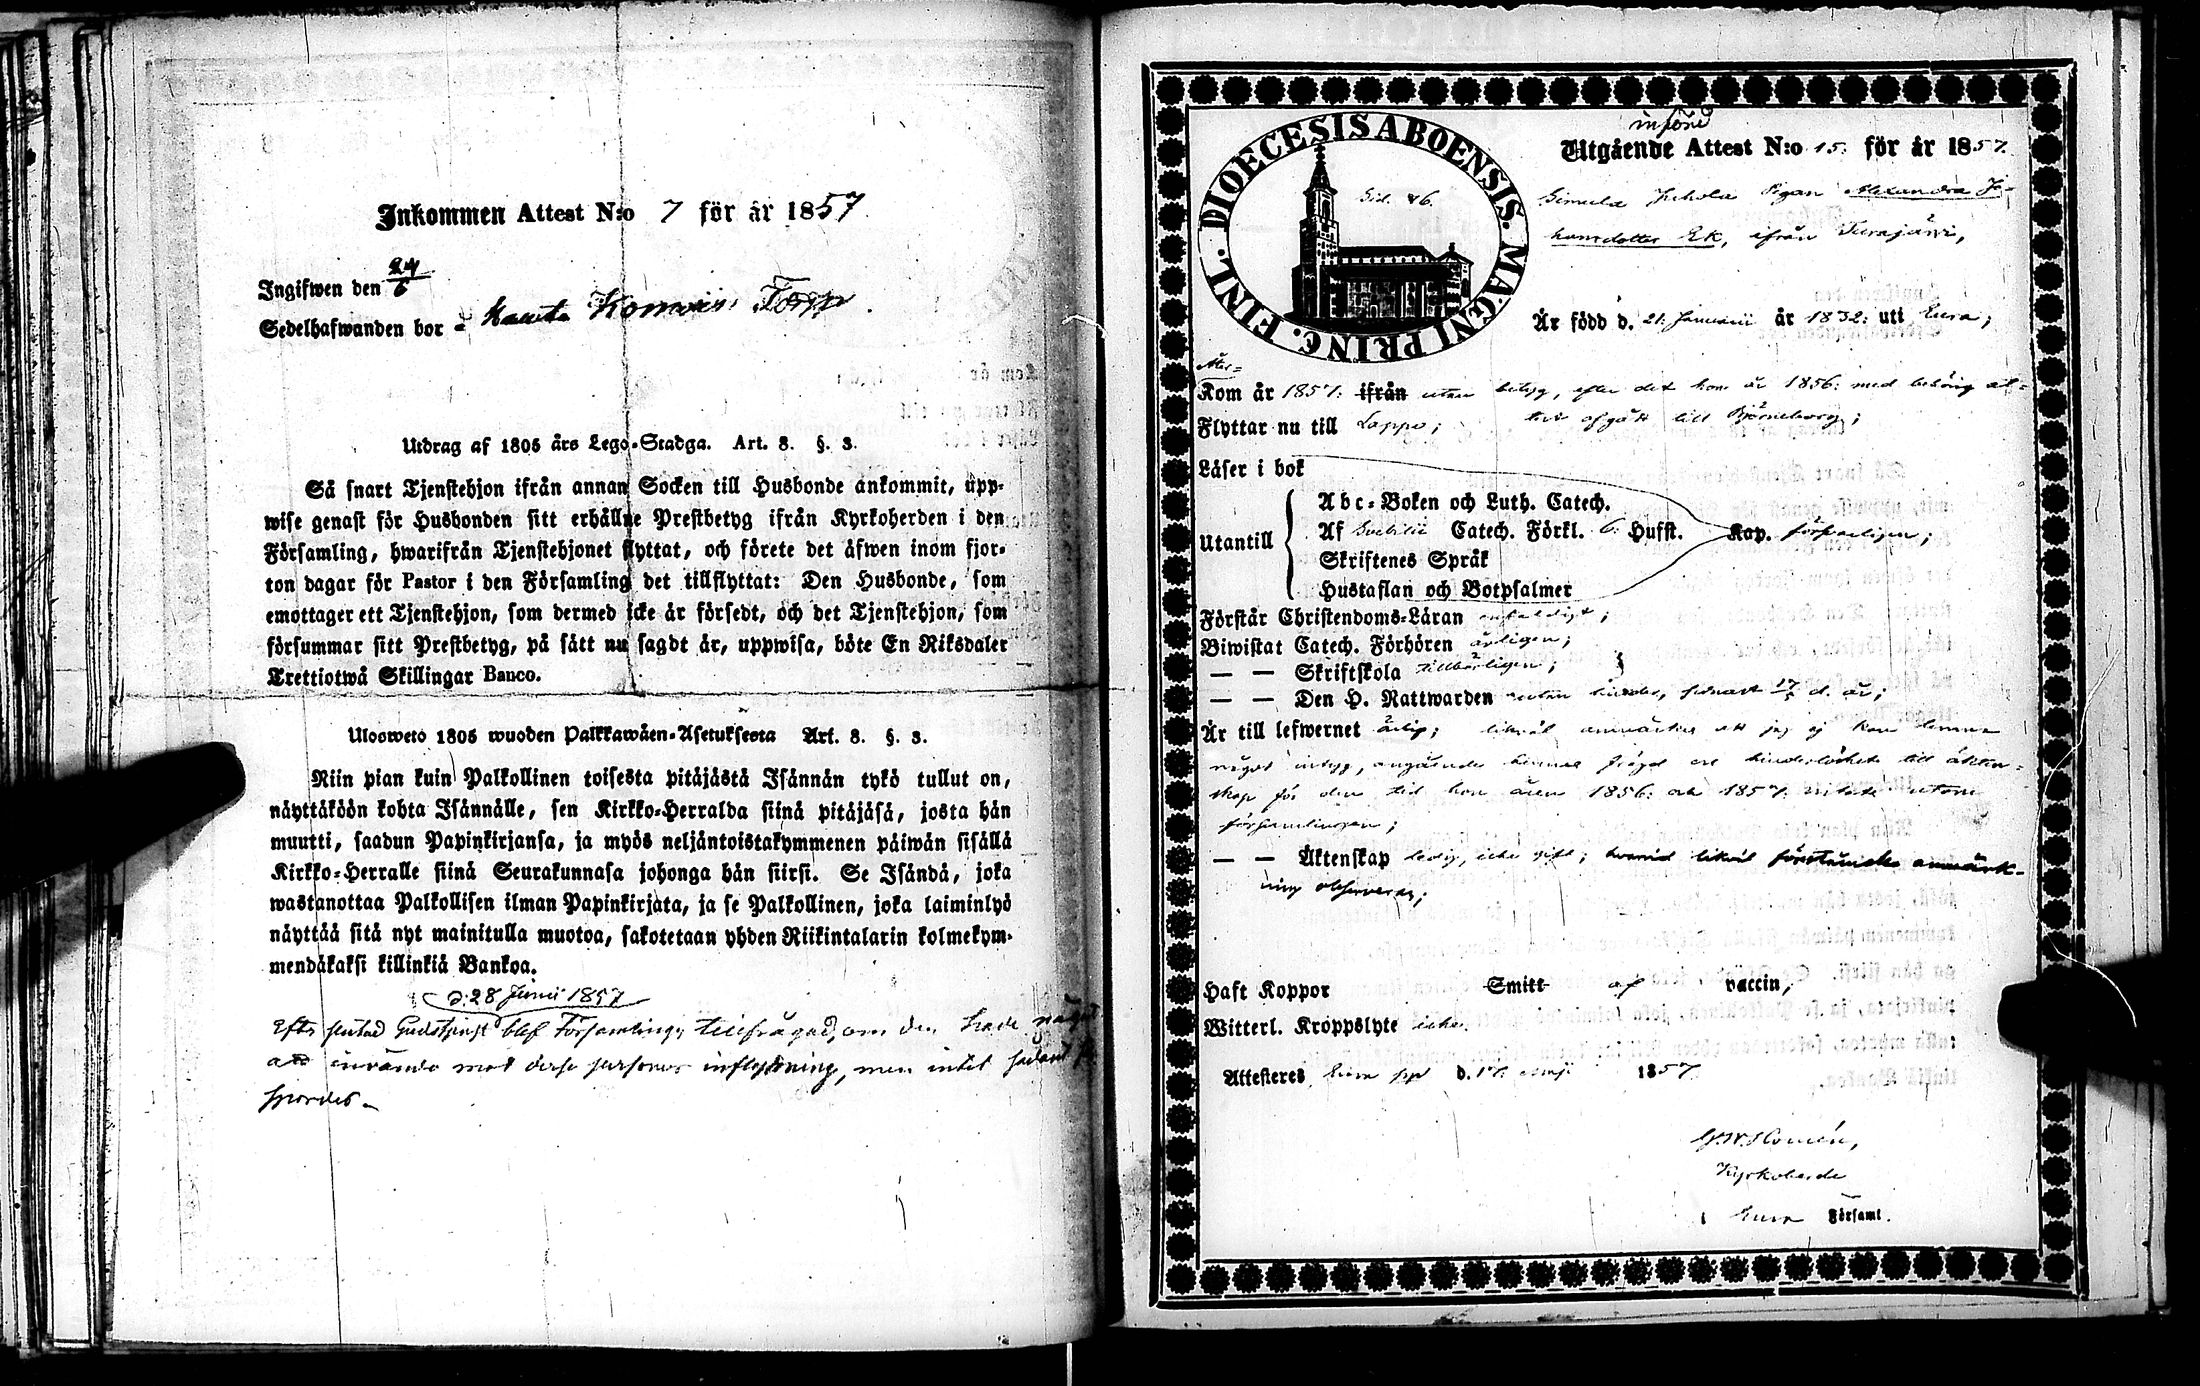 Inkommen Attest N:o 7 för år 1857
Ingifwen den 24/6
Sedelhafwanden bor å Kauta Torp
Utdrag af 1805 års Lego-Stadga. Art. 8. §. 3.
Så snart Tjenstehjon ifrån annan Socken till Husbonde ankommit, upp-
wise genast för Husbonden sitt erhållne Prestbetyg ifrån Kyrkoherden i den
Församling, hwarifrån Tjenstehjonet flyttat, och förete det äfwen inom fjor-
ton dagar för Pastor i den Församling det tillflyttat: Den Husbonde, som
emottager ett Tjenstehjon, som dermed icke är försedt, och det Tjenstehjon, som
försummar sitt Prestbetyg, på sätt nu sagdt är, uppwisa, böte En Riksdaler
Trettiotwå Skillingar Banco.
Uloswetö 1805 wuoden Palkkawäen-Asetuksesta Art. 8. §. 3.
Niin pian kuin Palkollinen toisesta pitäjästä Isännän tykö tullut on,
näyttäköön kohta Isännälle, sen Kirkko-Herralda siinä pitäjäsä, josta hän
muutti, saadun Papinkirjansa, ja myös neljäntoistakymmenen päiwän sisällä
Kirkko-Herralle siinä Seurakunnasa johonga hän siirsi. Se Isändä, joka
wastanottaa Palkollisen ilman Papinkirjata, ja se Palkollinen, joka laiminlyö
näyttää sitä nyt mainitulla muotoa, sakotetaan yhden Riikintalarin kolmekym-
mendäkaksi killinkiä Bankoa.
d: 28 Junii 1857
Efter slutad Gudstjenst blef Församlingen tillfrågad, om den hade något
att invända mot dessa personers inflyttning, men intet sådant
spordes.
införd
Utgående Attest N:o 15. för år 1857.
DIOECESIS ABOENSIS. MAGNI PRINC. FINL.
Sid. 46.
Pigan Alexandra Jo-
hansdotter Ek, ifrån Turajärvi,
Är född d. 21. Januarii år 1832: uti Eura;
Åter-
Kom år 1857. ifrån utan betyg, efter det hon år 1856. med behörig at-
Flyttar nu till Lappo; test afgått till Björneborg;
Läser i bok
Utantill
Abc-Boken och Luth. Catech.
Af Svebilii Catech. Förkl. 6. Hufst. Kap. försvarligen;
Skriftenes Språk
Hustaflan och Botpsalmer
Förstår Christendoms-Läran enfaldigt;
Biwistat Catech. Förhören årligen;
— — Skriftskola tillbörligen;
— — Den H. Nattwarden utan hinder, senast 17/5 d. år;
Är till lefwernet ärlig; likväl anmärkes att jag ej kan lemna
något intyg, angående hennes frejd och hinderlöshet till äkten-
skap för den tid hon åren 1856. och 1857. vistats utom
församlingen;
— — Äktenskap ledig, icke gift; hvarvid likväl förestående anmärk-
ning observeras;
Haft Koppor Smitt af vaccin;
Witterl. Kroppslyte icke.
Attesteres Eura d. 17. Maji 1857.
Kyrkoherde
i Eura Församl.